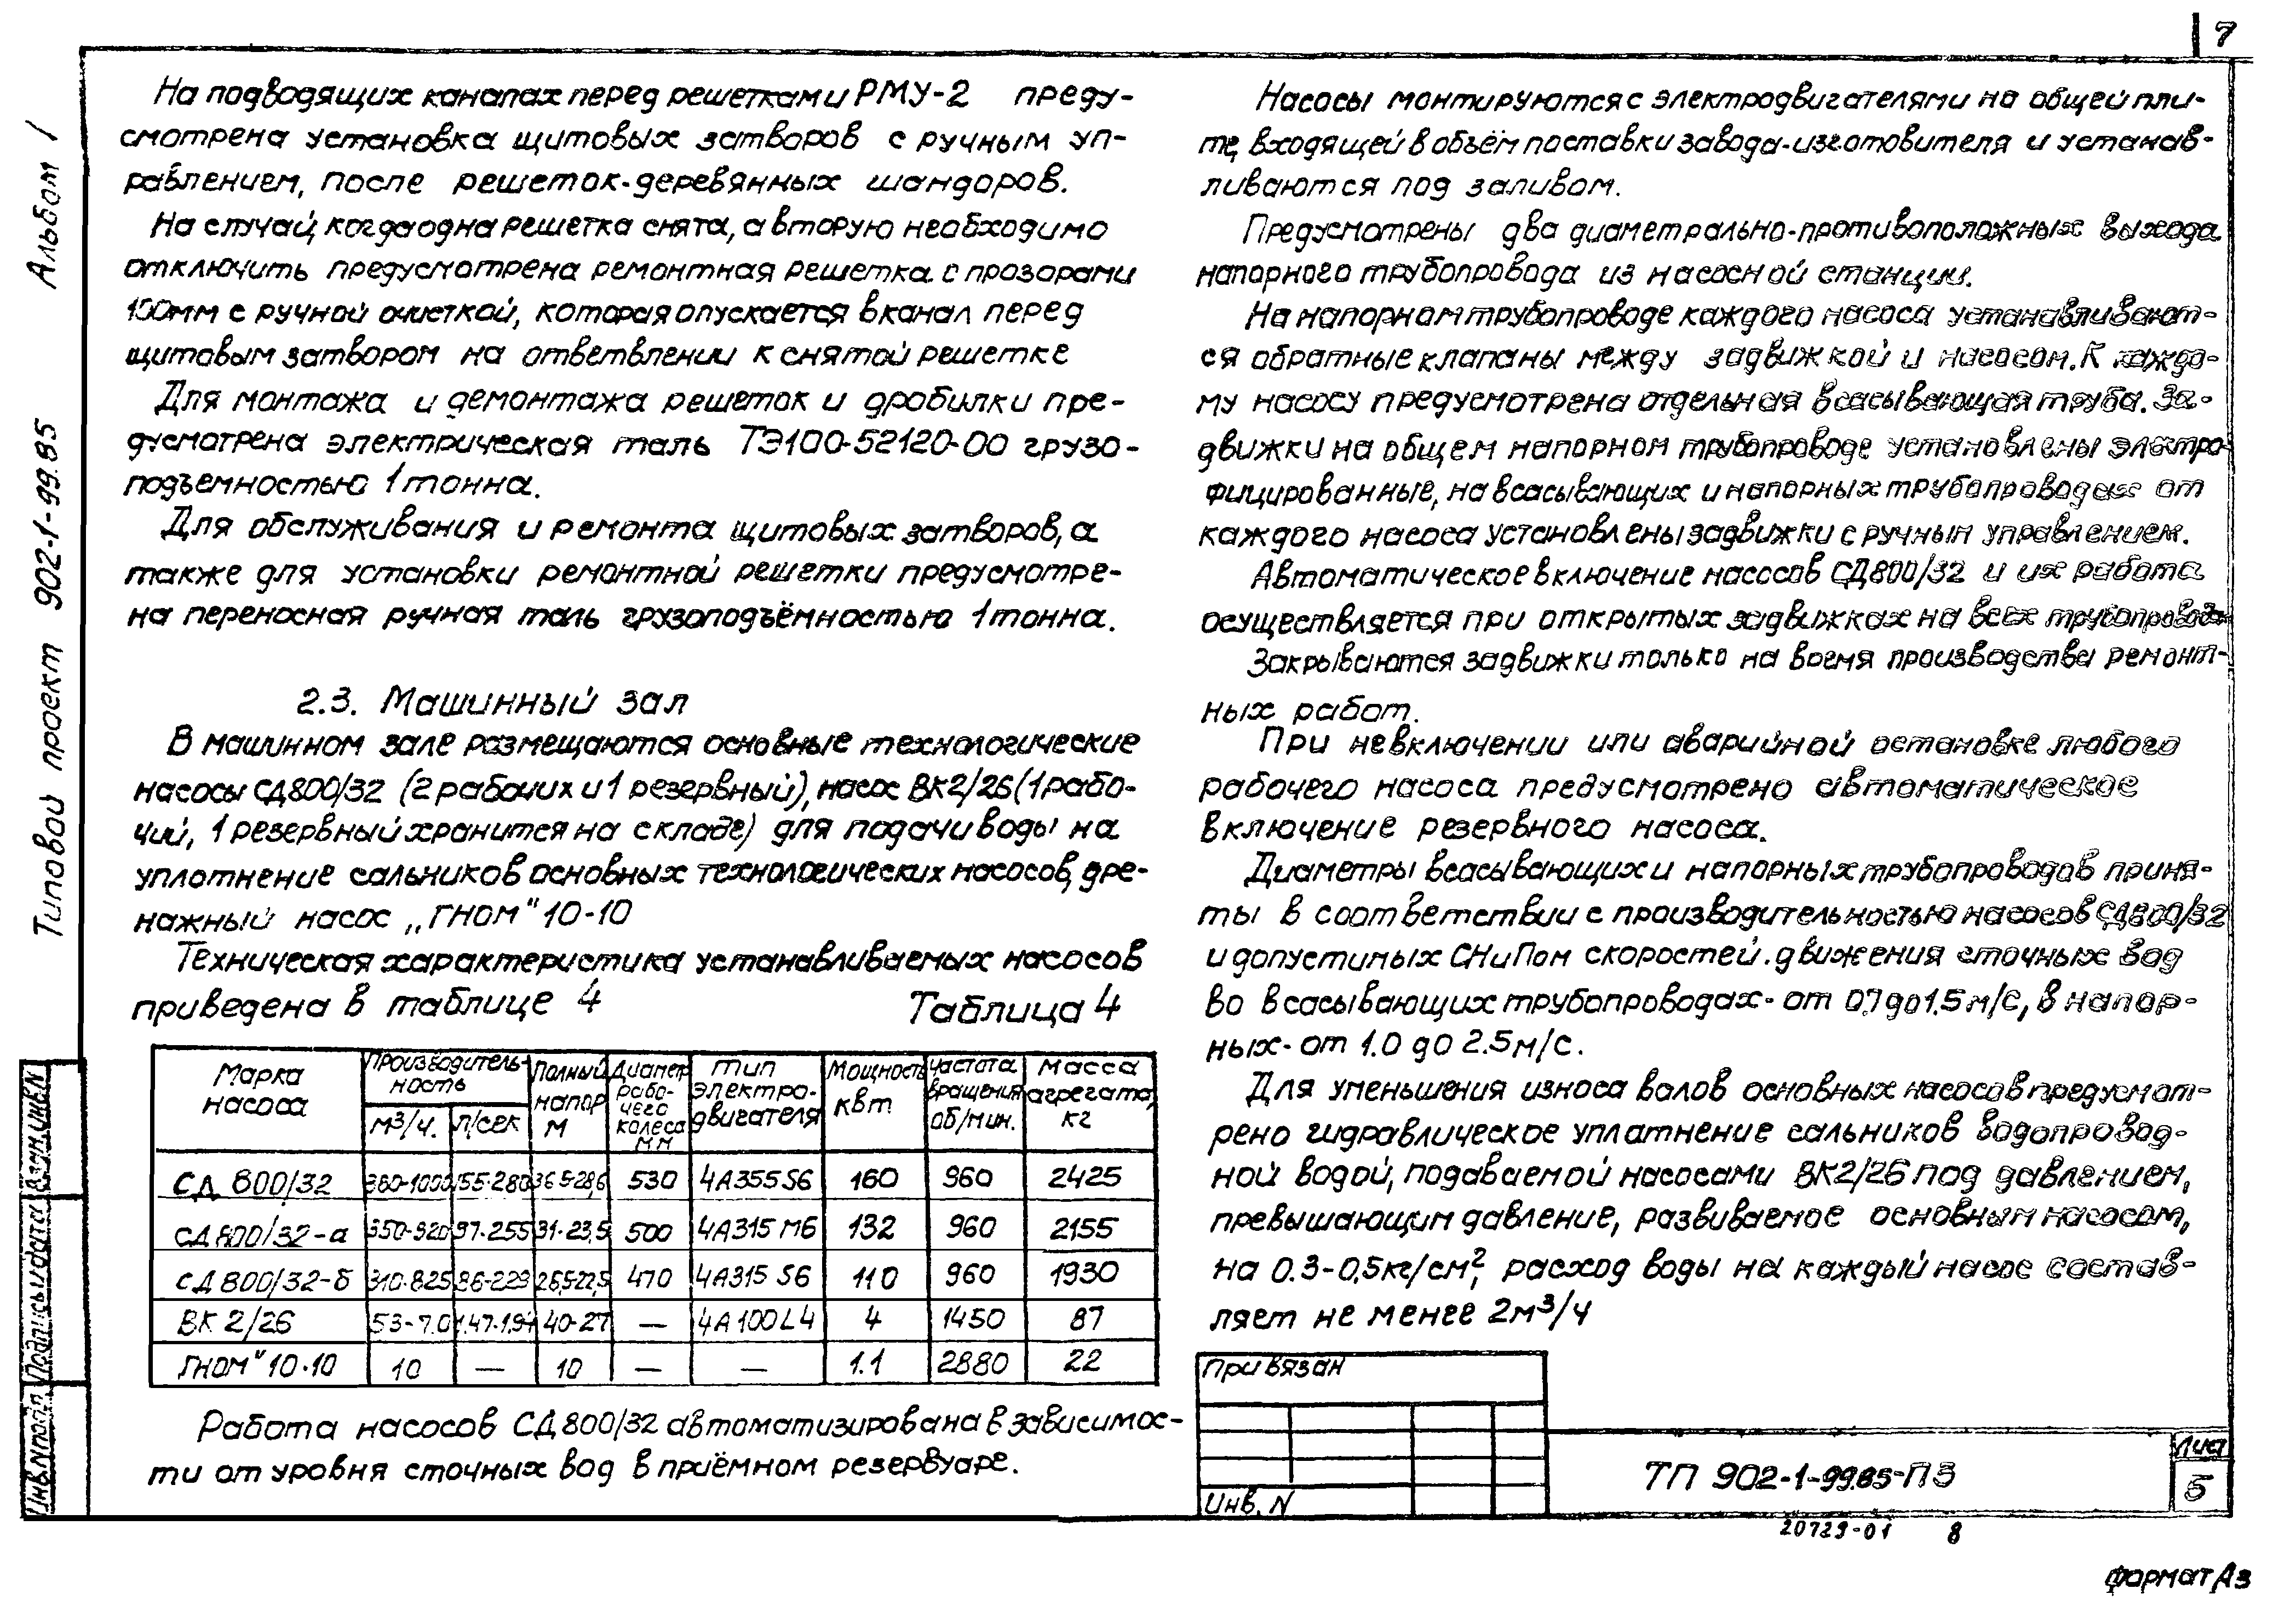 7
Альбом 1
Типовой проект 902-1-99.85
На подводящих каналах перед решетками РМУ-2 преду-
смотрена установка щитовых затворов с ручным уп-
равлением, после решеток-деревянных шандоров.
На случай, когда одна решетка снята, а вторую необходимо
отключить предусмотрена ремонтная решетка с прозорами
100мм с ручной очисткой, которая опускается в канал перед
щитовым затвором на ответвлении к снятой решетке
Для монтажа и демонтажа решеток и дробилки пре-
дусмотрена электрическая таль ТЭ100-52120-00 грузо-
подъемностью 1 тонна.
Для обслуживания и ремонта щитовых затворов, а
также для установки ремонтной решетки предусмотре-
на переносная ручная таль грузоподъёмностью 1 тонна.
2.3. Машинный зал
В машинном зале размещаются основные технологические
насосы СД800/32 (2 рабочих и 1 резервный), насос ВК2/26 (1 рабо-
чий, 1 резервный хранится на складе) для подачи воды на
уплотнение сальников основных технологических насосов, дре-
нажный насос „ГНОМ" 10-10
Техническая характеристика устанавливаемых насосов
приведена в таблице 4
Таблица 4
Марка насоса | Производительность м³/ч. | л/сек | Полный напор М | Диаметр рабочего колеса мм | Тип электродвигателя | Мощность квт | Частота вращения об/мин. | Масса агрегата, кг
СД 800/32 | 1000 | 155-280 | 36.5-28,6 | 530 | 4А355S6 | 160 | 960 | 2425
СД 800/32-а | 350-920 | 97-255 | 31-23,5 | 500 | 4А315М6 | 132 | 960 | 2155
СД 800/32-б | 310-825 | 86-229 | 26,5-22,5 | 470 | 4А315 S6 | 110 | 960 | 1930
ВК 2/26 | 53-7.0 | 1.47-1.94 | 40-27 | — | 4А100L4 | 4 | 1450 | 87
ГНОМ" 10-10 | 10 | — | 10 | — | — | 1.1 | 2880 | 22
Работа насосов СД800/32 автоматизирована в зависимос-
ти от уровня сточных вод в приёмном резервуаре.
Насосы монтируются с электродвигателями на общей пли-
те, входящей в объём поставки завода-изготовителя и устанав-
ливаются под заливом.
Предусмотрены два диаметрально-противоположных выхода
напорного трубопровода из насосной станции.
На напорном трубопроводе каждого насоса устанавливают-
ся обратные клапаны между задвижкой и насосом. К каждо-
му насосу предусмотрена отдельная всасывающая труба. За-
движки на общем напорном трубопроводе установлены электро-
фицированные, на всасывающих и напорных трубопроводах от
каждого насоса установлены задвижки с ручным управлением.
Автоматическое включение насосов СД800/32 и их работа
осуществляется при открытых задвижках на всех трубопроводах
Закрываются задвижки только на время производства ремонт-
ных работ.
При невключении или аварийной остановке любого
рабочего насоса предусмотрено автоматическое
включение резервного насоса.
Диаметры всасывающих и напорных трубопроводов приня-
ты в соответствии с производительностью насосов СД800/32
и допустимых СНиПом скоростей. движения сточных вод
во всасывающих трубопроводах- от 0.7 до 1.5 м/с, в напор-
ных- от 1.0 до 2.5м/с.
Для уменьшения износа валов основных насосов предусмот-
рено гидравлическое уплатнение сальников водопровод-
ной водой, подаваемой насосами ВК2/26 под давлением,
превышающим давление, развиваемое основным насосом,
на 0.3-0,5кг/см², расход воды на каждый насос состав-
ляет не менее 2м³/ч
Привязан
Инв. N
ТП 902-1-99.85-ПЗ
Лист
5
20729-01 8
Формат А3
Инв.N подл. Подпись и дата Взам.инв.N